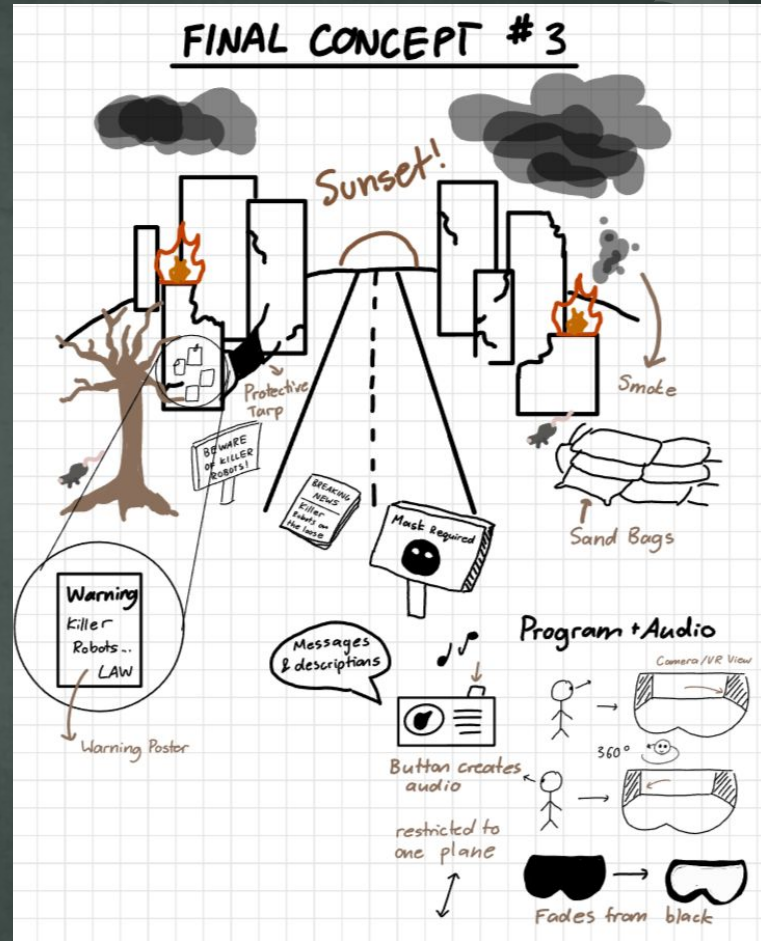 FINAL CONCEPT #3
Sunset!
Protective
Tarp
Smoke
BEWARE
OF KILLER
ROBOTS!
BREAKING
NEWS
Killer
Robots on
the loose
Mask Required
Sand Bags
Warning
Killer
Robots...
LAW
Warning Poster
Messages
& descriptions
Button creates
audio
restricted to
one plane
Program + Audio
Camera/VR View
360°
Fades from black